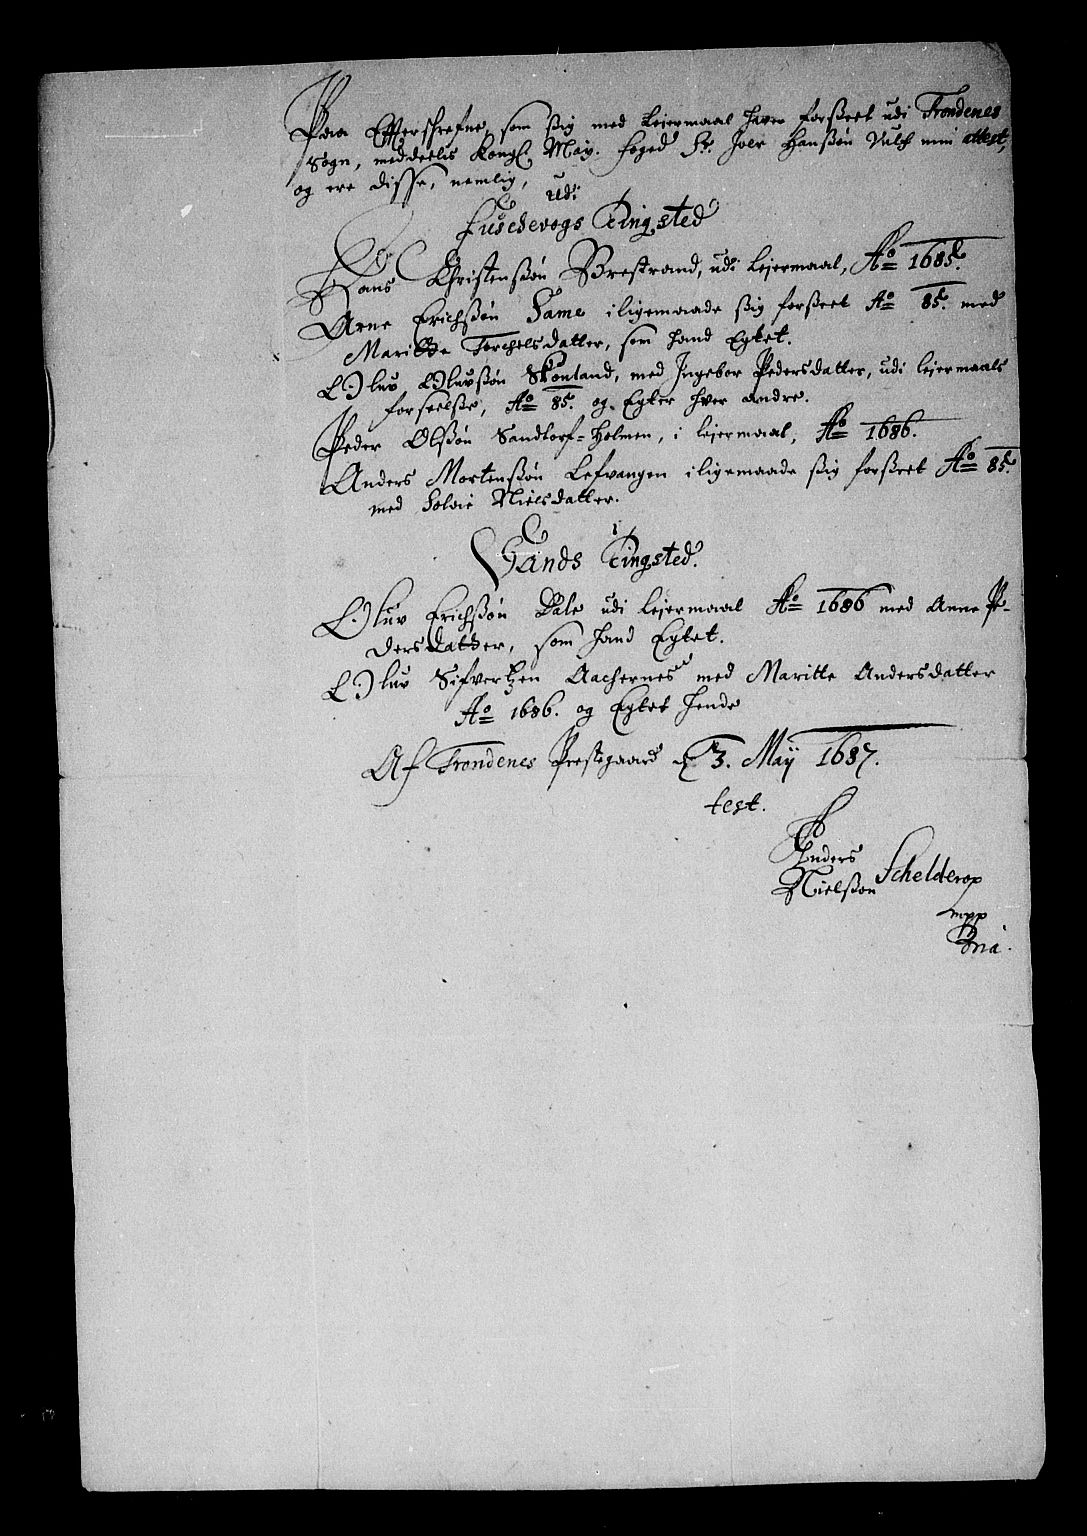 Paa Efterschrefne, som ßig med Leiermaal hafver forßeet udi Trondenes
Sogn, meddeelis Kongl. May. foged Sr. Joen Hanßøn min attest,
og ere disse, nemlig,
udi
Fusedevogs Tingsted
Hans Christensøn Brestrand, udi Lejermaal, Ao 1685.
Arne Erichßøn Same iligemaade ßig forßeet Ao 85. med
Maritte Torchelsdatter, som hand Egtet.
Oluv Oluvßøn Skonland, med Ingebor Pedersdatter, udi lejermaals
forseelse, Ao 85. og Egter hver andre.
Peder Olßøn Sandtorf-Holmen, i lejermaal, Ao 1686.
Anders Mortenßøn Lefvangen iligemaade ßig forßeet Ao 85.
med Solvie Nielsdatter.
i
Sands Tingsted.
Oluv Erichßøn Dale udi Lejermaal Ao 1686 med Anne Pe-
dersdatter, som hand Egtet.
Oluv Sifvertzen Aachernes med Maritte Andersdatter
Ao 1686. og Egtet hende
Af Trondenes Prestegaard d. 3. Maÿ 1687.
test.
Anders
Nielßon Schelderop
mpp